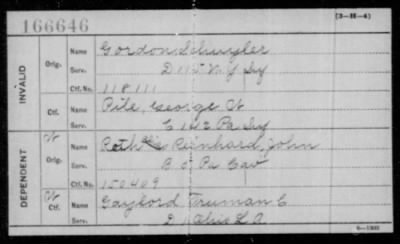 166646
(3—H—4)
INVALID
Orig.
Name Gordon Schuyler
Serv. D 115 N Y Inf
Ctf. No. 118111
Ctf.
Name Pile, George W
Serv. C 142 Pa Inf
DEPENDENT
W
Orig.
Name Reinhard John
Serv. B 5 Pa Cav
Ctf. No. 150409
W
Ctf.
Name Gaylord Truman C
Serv. D 1 Ohio L A